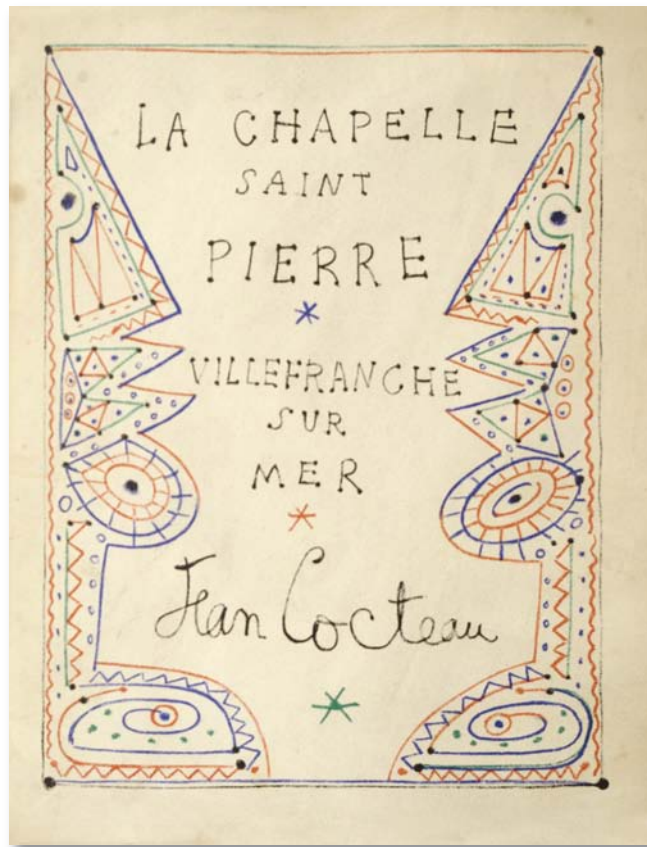 LA CHAPELLE
SAINT
PIERRE
VILLEFRANCHE
SUR
MER
Jean Cocteau